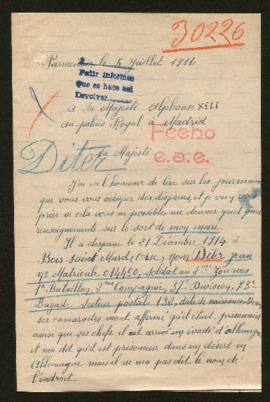 30226
Parmentier le 5 Juillet 1916
Pedir informes
Que se hace así
Devolver
a Sa Majesté Alphonse XIII
au palais Royal à Madrid
Fecho
e.a.e.
Diter
Sa Majesté
J'ai l'honneur de lire sur les journaux
que vous vous occupez des disparus, et je
prier si cela vous possible me donner quelques
renseignements sur le sort de mon mari
Il a disparu le 21 Décembre 1914 à
Bois Saint Mard, (Oise), nom Diter Jean
No Matricule 014450, soldat au Zouaves
1er Bataillon, Compagnie, 37e Division, 73e
Brigade, Secteur postal 132, date de naissance
ses camarades m'ont affirmé qu'il était prisonnier
ainsi que ses chefs, il est arrivé un évadé d'allemagne
et m'a dit qu'il est prisonnier dans un désert en
Allemagne mais il ne m'a pas dit le nom de
l'endroit.